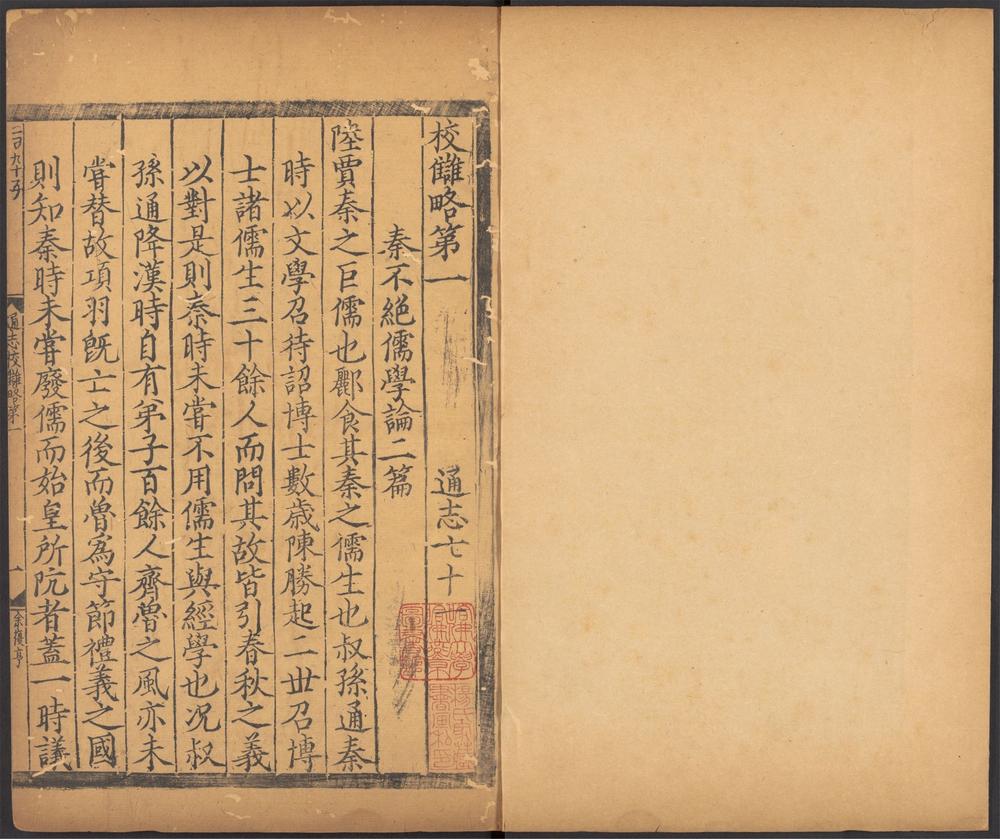 校讎略第一　通志七十一
秦不絕儒學論二篇
陸賈秦之巨儒也酈食其秦之儒生也叔孫通秦
時以文學召待詔博士數歲陳勝起二世召博
士諸儒生三十餘人而問其故皆引春秋之義
以對是則秦時未嘗不用儒生與經學也况叔
孫通降漢時自有弟子百餘人齊魯之風亦未
甞替故項羽旣亡之後而魯爲守節禮義之國
則知秦時未甞廢儒而始皇所阬者蓋一時議
二百九十五
通志校讎略第一
一